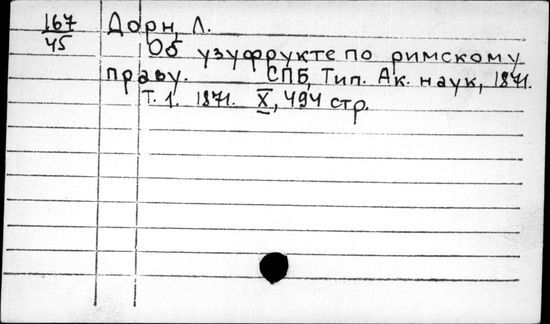 167
45
Дорн, Л.
Об узуфрукте по римскому
праву. СПБ, Тип. Ак. наук, 1871.
Т. 1. 1871. X, 494 стр.